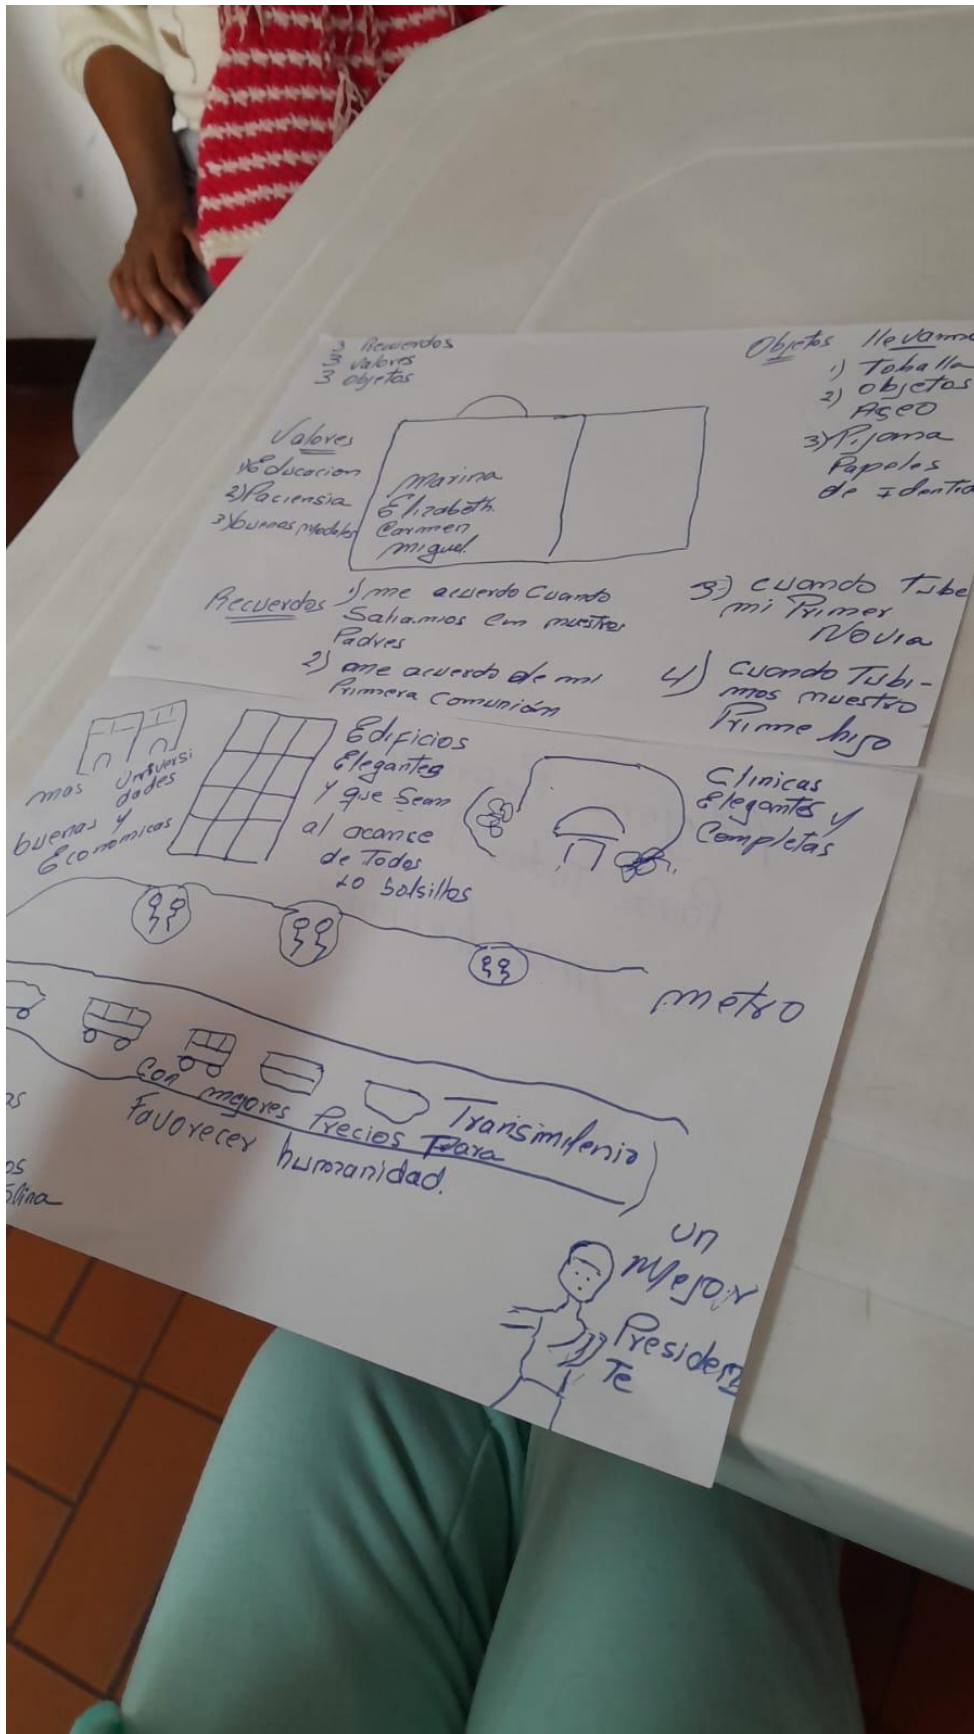 3 Recuerdos
3 valores
3 objetos
Objetos llevarme
1) Toballa
2) objetos
Aseo
3) Pijama
Papeles
de Identid
Valores
1) Educacion
2) Paciensia
3) buenos modales
Marina
Elizabeth.
Carmen
miguel.
Recuerdos
1) me acuerdo Cuando
Saliamios con nuestros
Padres
2) me acuerdo de mi
Primera Comunión
3) cuando Tube
mi Primer
Novia
4) cuando Tubi-
mos nuestro
Prime hijo
mas Universi
dades
buenas y
Economicas
Edificios
Elegantes
y que Sean
al acance
de Todos
Lo bolsillos
Clinicas
Elegantes y
Completas
metro
Transmilenio
Con mejores Precios Para
Favorecer humanidad.
as
os
olina
un
Mejor
Presiden
Te